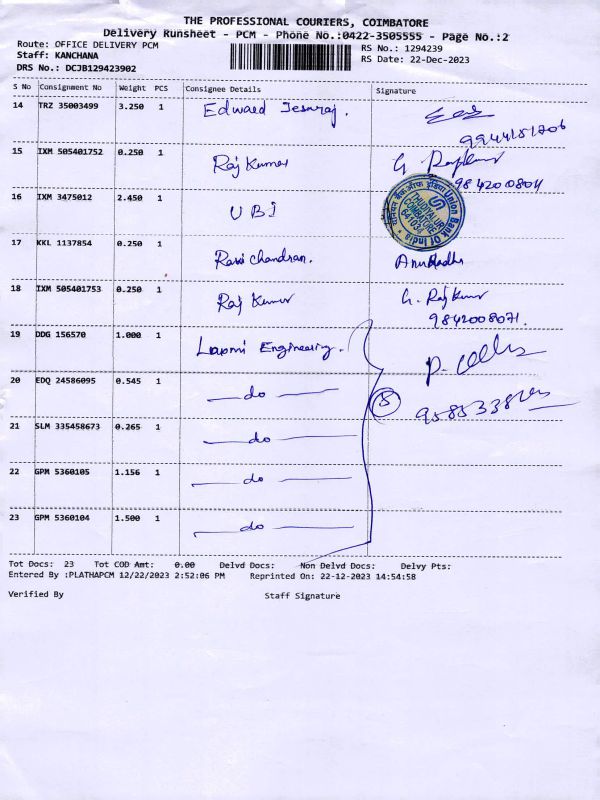 THE PROFESSIONAL COURIERS, COIMBATORE
Delivery Runsheet - PCM - Phone No.:0422-3505555 - Page No.:2
Route: OFFICE DELIVERY PCM RS No.: 1294239
Staff: KANCHANA RS Date: 22-Dec-2023
DRS No.: DCJB129423902
S No Consignment No Weight PCS Consignee Details Signature
14 TRZ 35003499 3.250 1 Edward
15 IXM 505401752 0.250 1 Raj Kumar G. Rajkumar
16 IXM 3475012 2.450 1 U B I
Union Bank Of India
COIMBATORE
17 KKL 1137854 0.250 1 Ravi chandran. Anuradha
18 IXM 505401753 0.250 1 Raj Kumar G. Raj Kumar
9842008071.
19 DDG 156570 1.000 1 Laxmi Engineering.
20 EDQ 24586095 0.545 1 do 5
21 SLM 335458673 0.265 1 do
22 GPM 5360105 1.156 1 do
23 GPM 5360104 1.500 1 do
Tot Docs: 23 Tot COD Amt: 0.00 Delvd Docs: Non Delvd Docs: Delvy Pts:
Entered By :PLATHAPCM 12/22/2023 2:52:06 PM Reprinted On: 22-12-2023 14:54:58
Verified By Staff Signature